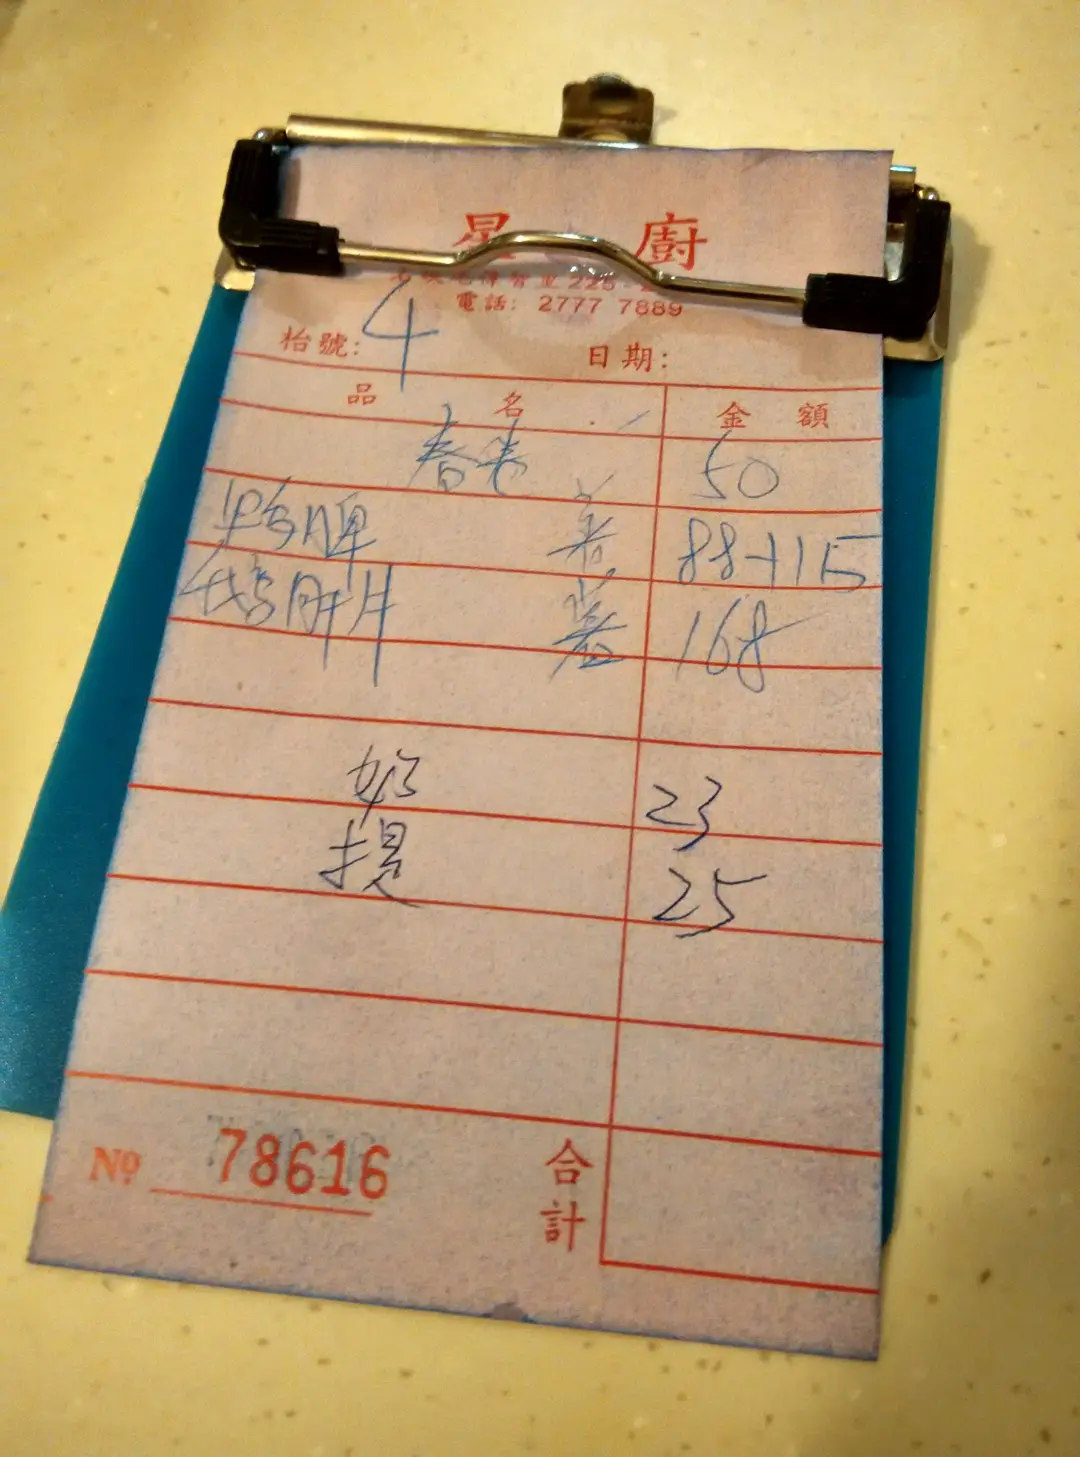 星 廚
電話: 2777 7889
枱號: 4 日期:
品 名 金 額
春卷 50
鴨脾 88+115
鵝肝片 168
奶 23
提 25
No 78616 合計